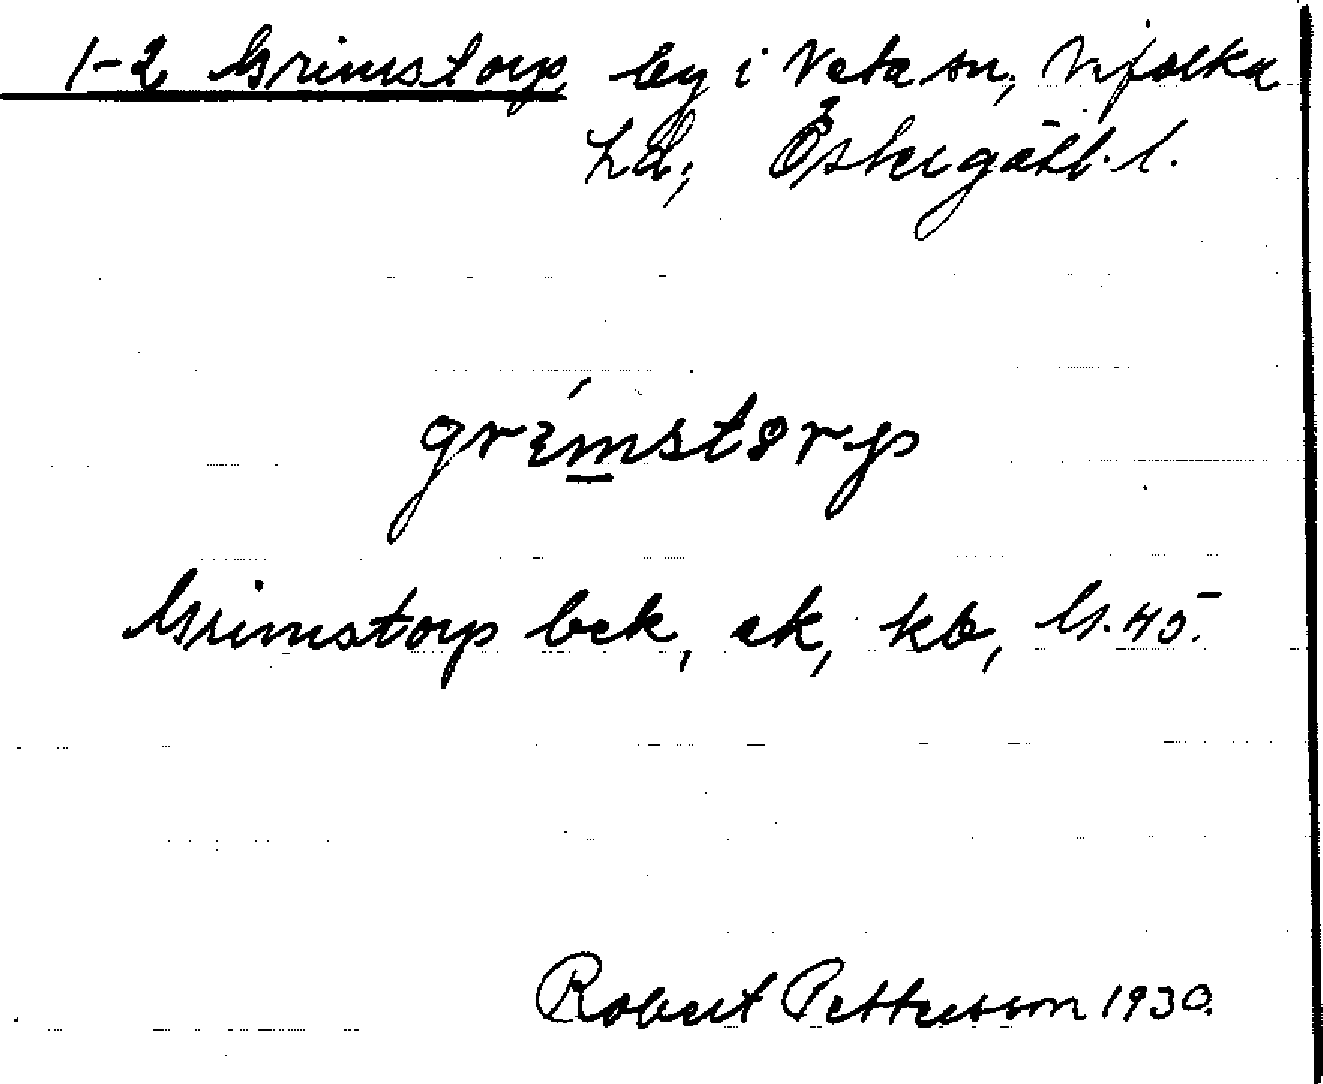 1-2 Grimstorp by i Veta sn, Vifolka
hd, Östergötl. l.
grimstorp
Grimstorp bek, ek, kb, G. 45.
Robert Pettersson 1930.